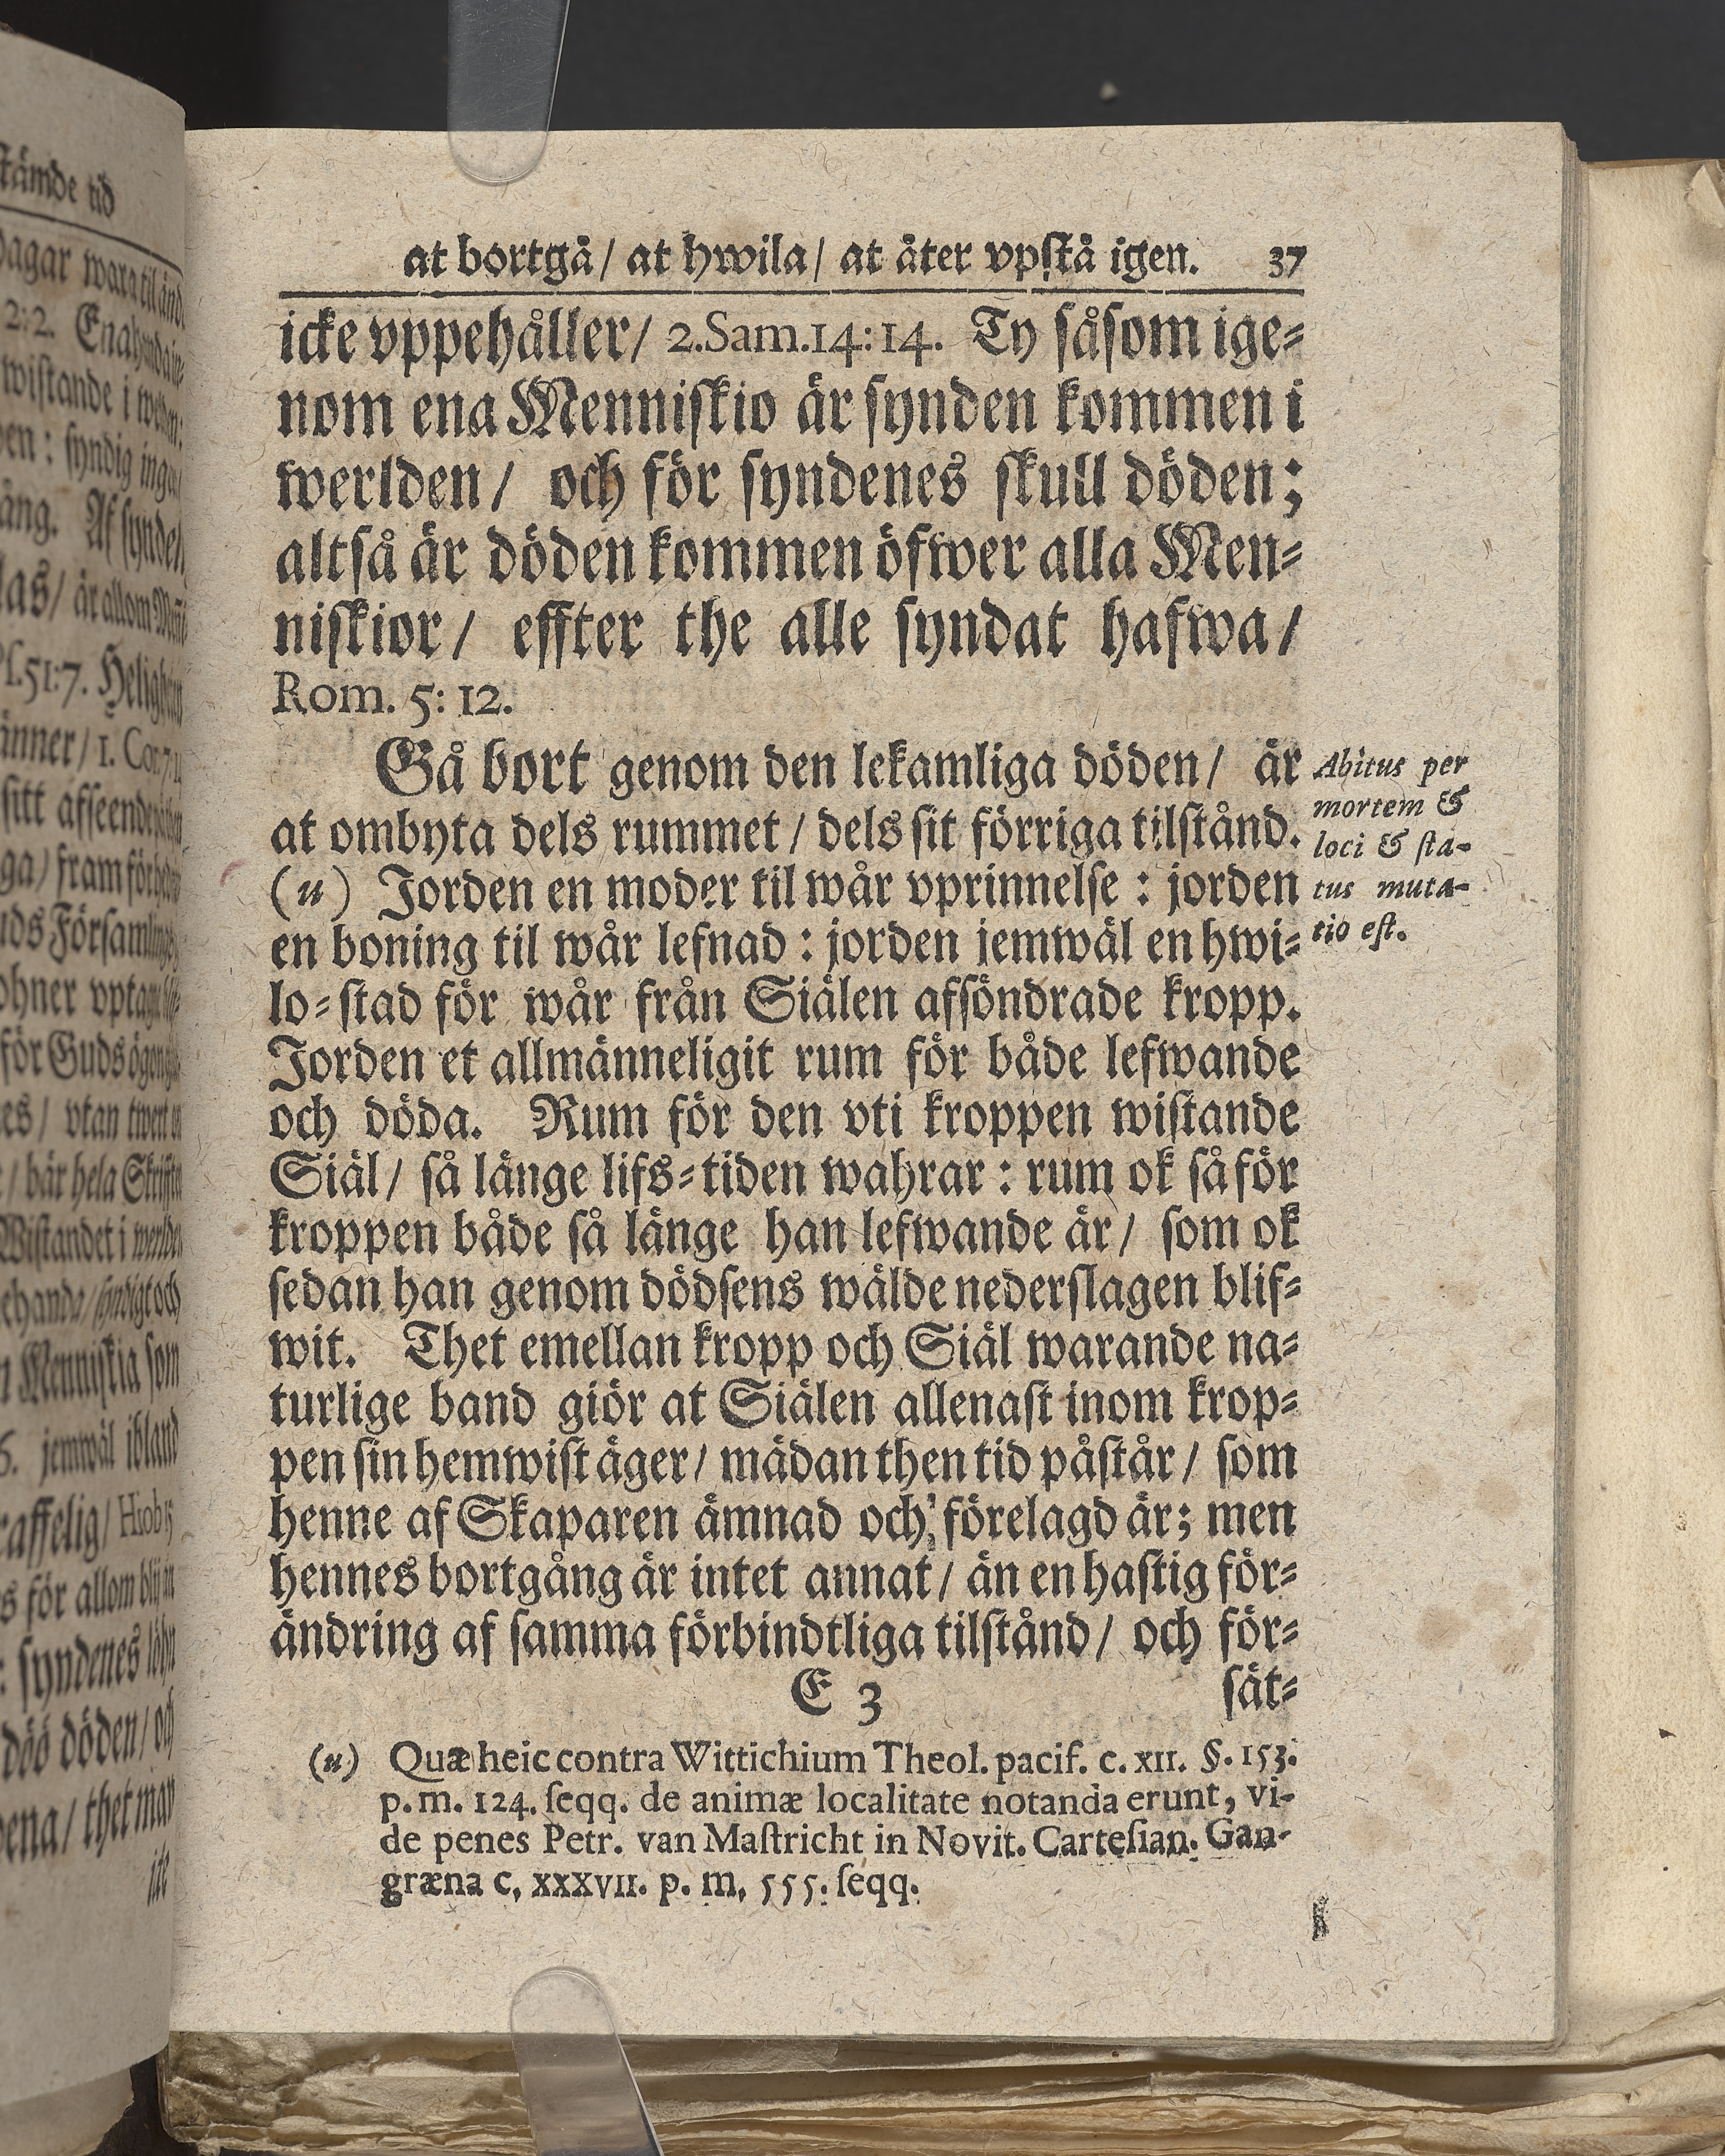 at bortgå/ at hwila/ at åter vpstå igen. 37
icke vppehåller/ 2.Sam.14:14. Ty såsom ige-
nom ena Menniskio är synden kommen i
werlden/ och för syndenes skull döden;
altså är döden kommen öfwer alla Men-
niskior/ effter the alle syndat hafwa/
Rom. 5: 12.
Gå bort genom den lekamliga döden/ är
at ombyta dels rummet/ dels sit förriga tilstånd.
(u) Jorden en moder til wår vprinnelse: jorden
en boning til wår lefnad: jorden jemwäl en hwi-
lo-stad för wår från Siälen afsöndrade kropp.
Jorden et allmänneligit rum för både lefwande
och döda. Rum för den vti kroppen wistande
Siäl/ så länge lifs-tiden wahrar: rum ok så för
kroppen både så länge han lefwande är/ som ok
sedan han genom dödsens wälde nederslagen blif-
wit. Thet emellan kropp och Siäl warande na-
turlige band giör at Siälen allenast inom krop-
pen sin hemwist äger/ mädan then tid påstår/ som
henne af Skaparen ämnad och förelagd är; men
hennes bortgång är intet annat/ än en hastig för-
ändring af samma förbindtliga tilstånd/ och för-
E 3 sät-
Abitus per
mortem &
loci & sta-
tus muta-
tio est.
(u) Quæ heic contra Wittichium Theol. pacif. c. XII. §. 153.
p. m. 124. seqq. de animæ localitate notanda erunt, vi-
de penes Petr. van Mastricht in Novit. Cartesian. Gan-
græna c, XXXVII. p. m, 555. seqq.